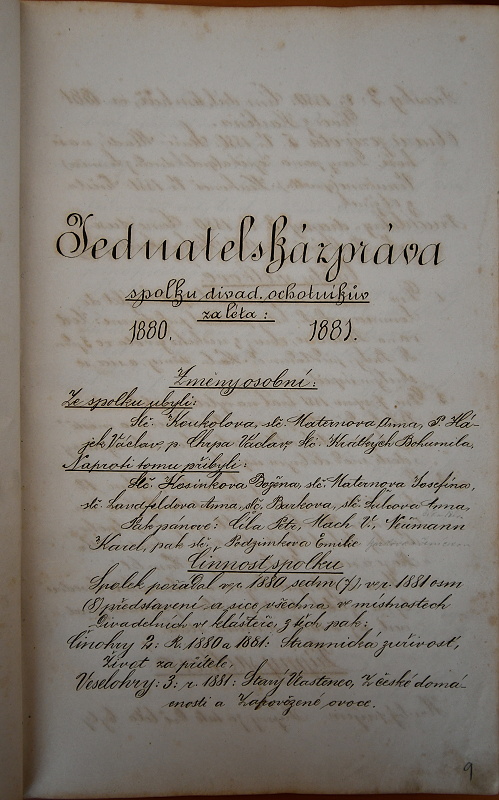 Jednatelská zpráva
spolku divad. ochotníkův
za léta:
1880. 1881.
Změny osobní:
Ze spolku ubyli:
Slč. Koukolova, slč. Maternova Anna, P. Há-
jek Václav, p. Chrpa Václav Slč. Krátkých Bohumila.
Naproti tomu přibyli:
Slč. Kesinkova Božena, slč. Maternova Josefina,
slč. Landfeldova Anna, slč. Barkova, slč. Šulcova Anna,
Pak panové: Cíla Petr, Mach V., Neumann
Karel, pak slč. Podzimkova Emilie
Činnost spolku
Spolek pořádal v r. 1880 sedm (7), v r. 1881 osm
(8) představení a sice všechna v místnostech
Divadelních v klášteře, z těch pak:
Činohry 2: R. 1880 a 1881: Strannická zuřivost,
Život za přítele.
Veselohry: 3: r. 1881: Starý Vlastenec, Z české domá-
cnosti a Zapovězené ovoce.
9